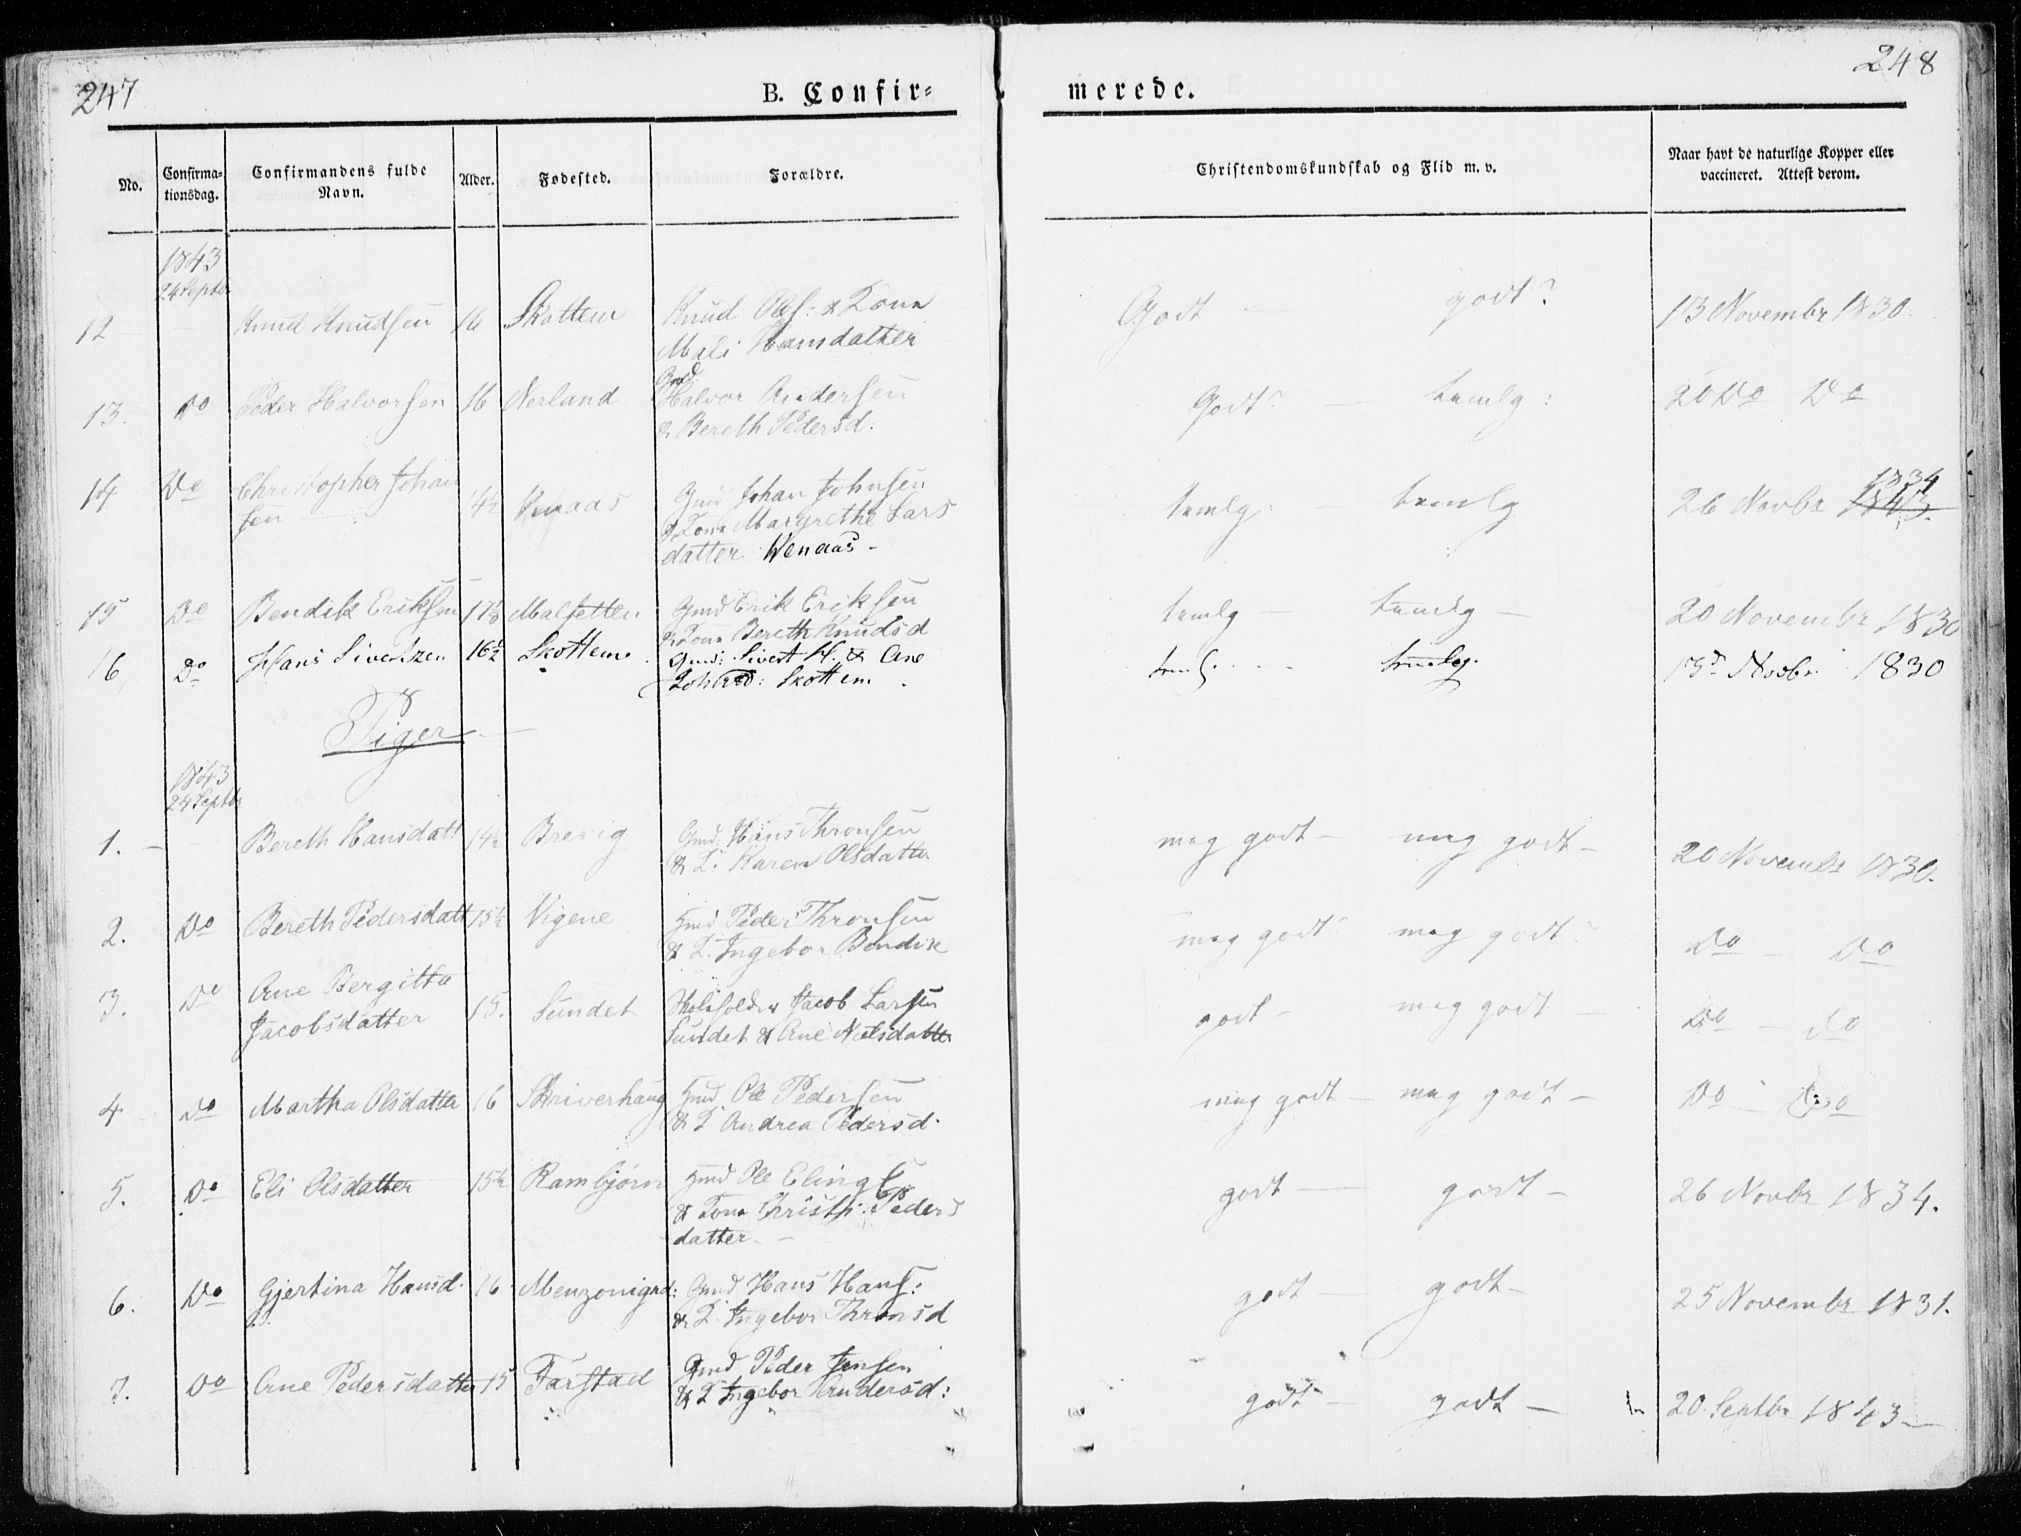 247
B. Confir=
merede.
248
No.
Confirma-
tionsdag.
Confirmandens fulde
Navn.
Alder.
Fødested.
Forældre.
Christendomskundskab og Flid m. v.
Naar havt de naturlige Kopper eller
vaccineret. Attest derom.
1843
24 Septbr
12 Knud Knudsen 16 Skottem Knud Ols: & Kone Godt godt? 13 Novembr 1830.
Mali Hansdatter
Gmd
13. Do Peder Halvorsen 16 Nerland Halvor Andersen Godt temlg: 20 Do Do
& Bereth Pedersd:
14 Do Christopher Johan 14½ Wenaas Gmd Johan Johnsen temlg: temlg 26 Novbr 1843. 1834
sen & Kone Margrethe Lars
datter Wenaas -
15 Do Bendik Eriksen 17 Malsetter Gmd Erik Eriksen temlg - temlg - 20 Novembr 1830
& Kone Bereth Knudsd
16 Do Hans Sivertzen 16½ Skottem Gmd: Sivert H. & Ane teml. temlg. 13d Novbr 1830
Johnsd: Skottem.
Piger
1843
24 Septbr
1. Bereth Hansdatt 14½ Brevig Gmd. Hans Thronsen meg godt - meg godt - 20 Novembr 1830.
& K: Karen Olsdatter
2. Do Bereth Pedersdatt 15½ Vigene Hmd Peder Thronsen meg godt meg godt Do - Do
& K. Ingebor Bendik
3. Do Ane Bergitta 15. Sundet Jacob Larsen godt - meg godt - Do - Do
Jacobsdatter Sundet & Ane Nielsdatter
4 Do Martha Olsdatter 16 Skriverhaug Hmd Ole Pedersen meg godt - meg godt - Do Do
& K Andrea Pedersd.
5. Do Eli Olsdatter 15½ Rambjørn Hmd Ole Elings godt - godt - 26 Novbr 1834.
& Kone Christi: Peders
datter -
6. Do Gjertina Hansd. 16 Gmd Hans Hans: godt - godt - 25 Novembr 1831.
& K. Ingebor Thronsd
7. Do Ane Pedersdatter 15 Farstad Gmd Peder Jensen godt - godt - 20 Septbr 1843 -
& K Ingebor Andersd: